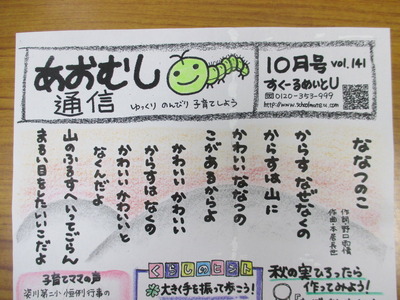 あおむし
通信
ゆっくり のんびり 子育てしよう
10月号 vol.141
すくーるめいとU
0120-353-999
ななつのこ
作詞・野口雨情
作曲・本居長世
からす なぜなくの
からすは山に
かわいい 七つの
こがあるからよ
かわいい かわいい
からすはなくの
かわいいかわいいと
なくんだよ
山のふるすへ いってごらん
まるい目をしたいいこだよ
子育てママの声
恒例行事の
くらしのヒント
大きく手を振って歩こう!
秋の実ひろったら
作ってみよう!